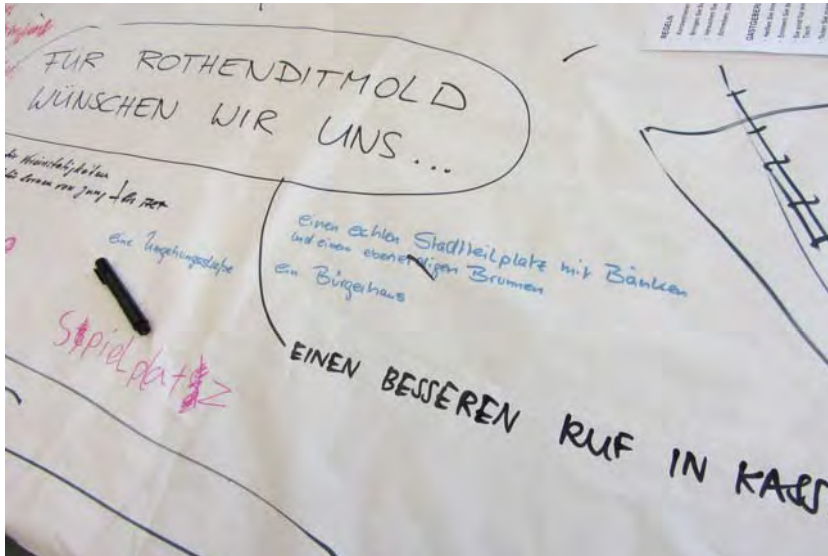 FÜR ROTHENDITMOLD
WÜNSCHEN WIR UNS...
von jung
eine Umgehungsstraße
einen echten Stadtteilplatz mit Bänken
und einem ebenerdigen Brunnen
ein Bürgerhaus
Spielplatz
EINEN BESSEREN RUF IN KASS
REGELN
GASTGEBER